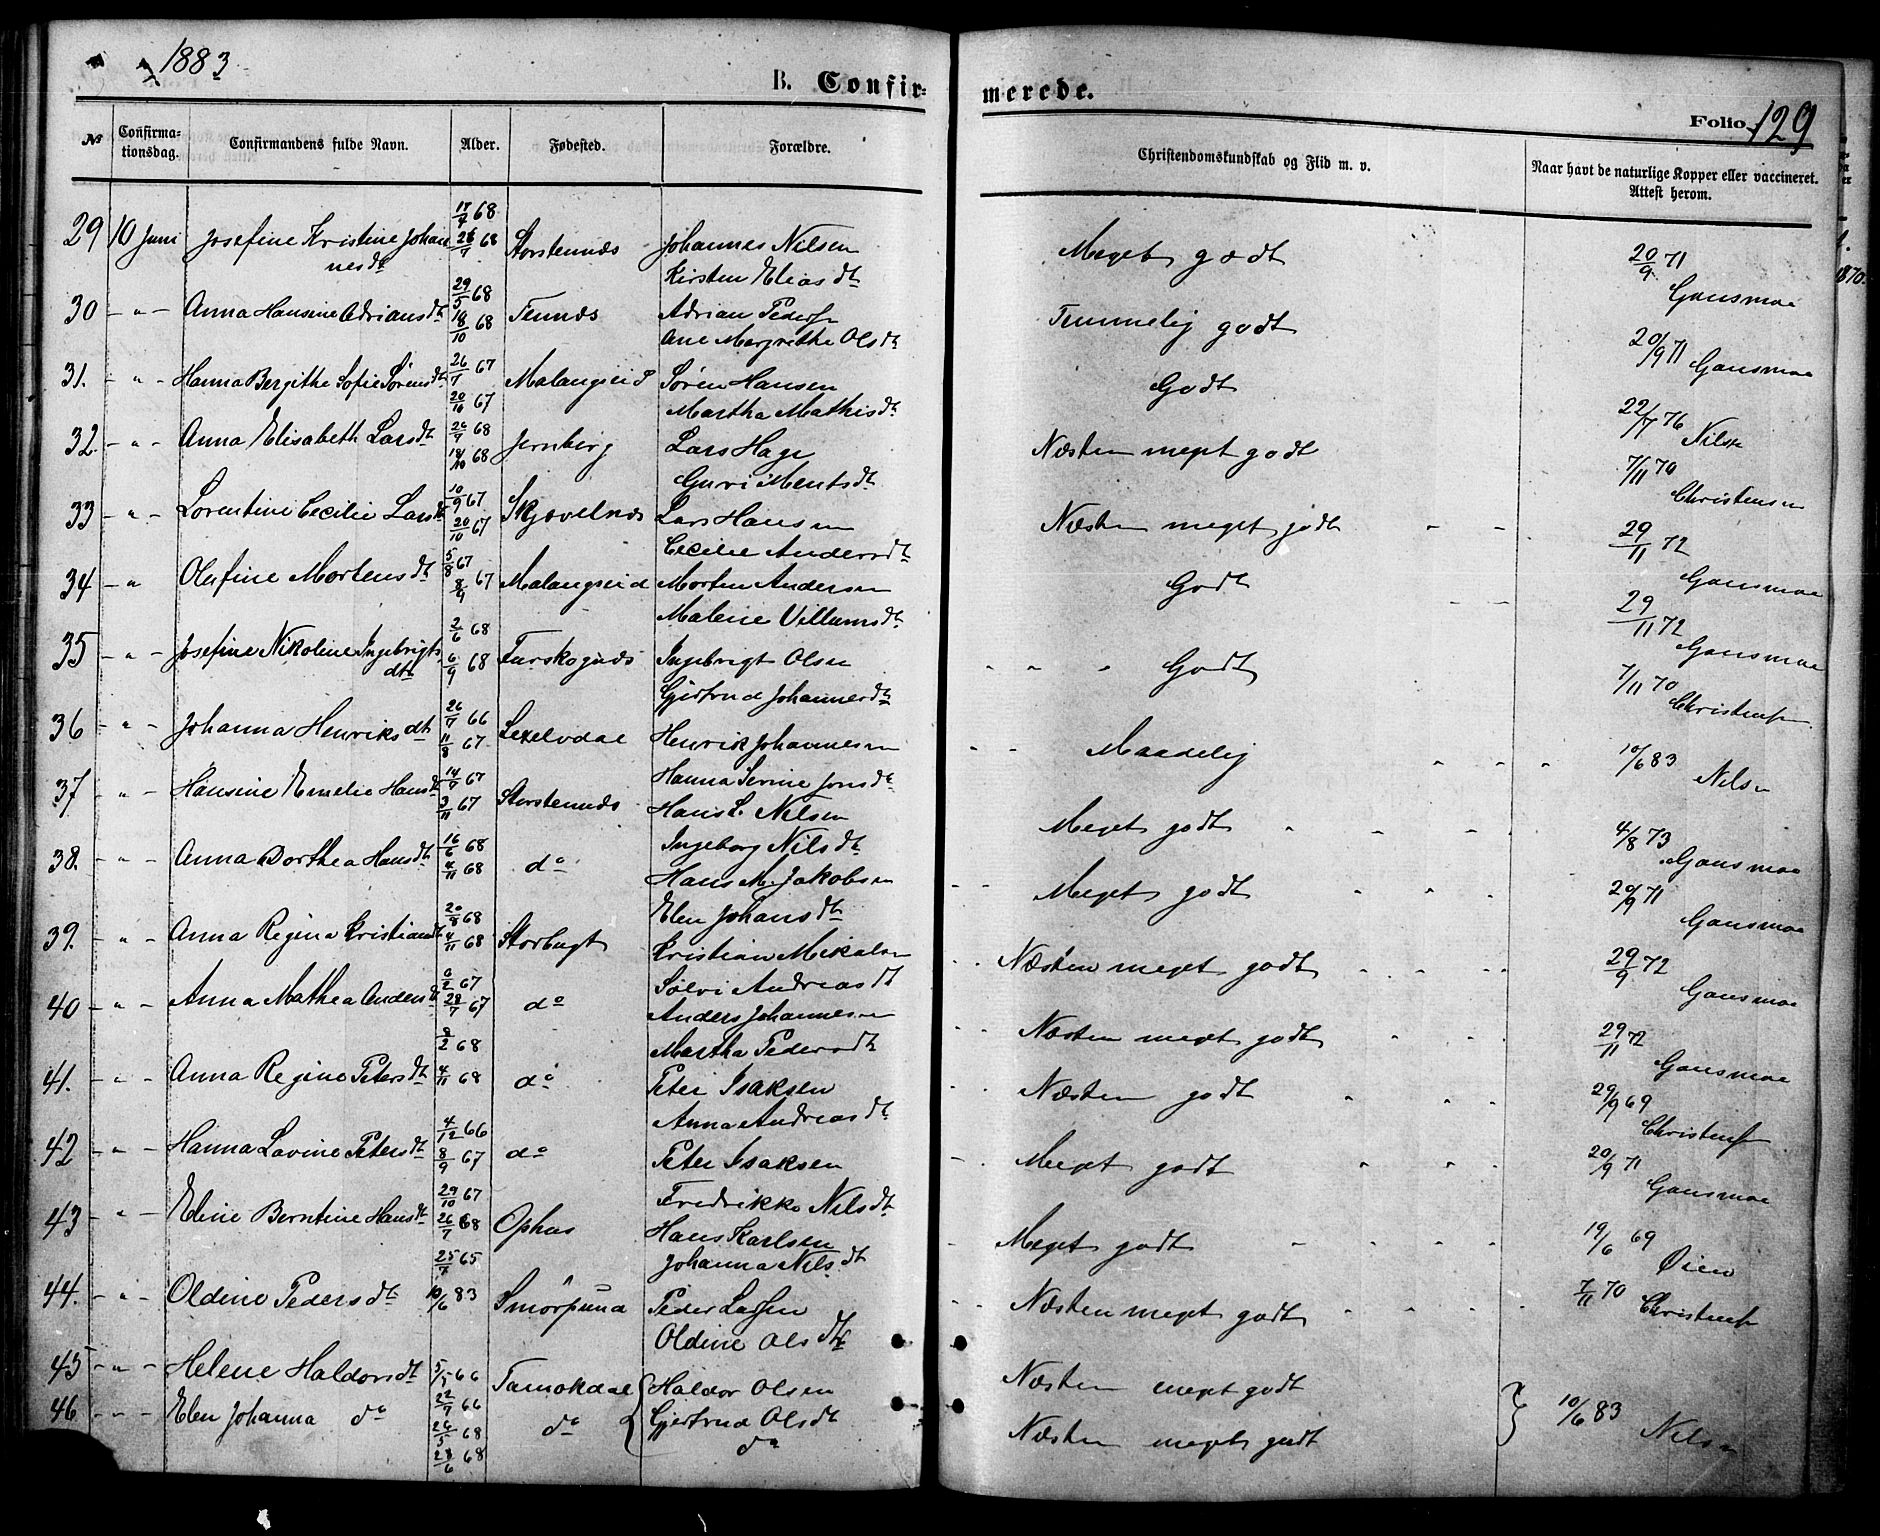 1883
B. Confirmerede.
Folio 129
№ Confirmationsdag. Confirmandens fulde Navn. Alder. Fødested. Forældre. Christendomskundskab og Flid m. v. Naar havt de naturlige Kopper eller vaccineret. Attest herom.
29 10 Juni Josefine Kristine Johannesdt 17/7 68 26/7 68 Storstennæs Johannes Nilsen Kirsten Eliasdt Meget godt 20/9 71 Gansmoe
30 - " - Anna Hansine Adriansdt 29/5 68 18/10 68 Tennæs Adrian Peders Ane Margrethe Olsdt Temmelig godt 20/9 71 Gansmoe
31. - " - Hanna Bergithe Sofie Sørensdt 26/7 67 20/10 67 Malangseid Søren Hansen Martha Mathisdt Godt 22/7 76 Nilsen
32. - " Anna Elisabeth Larsdt 26/7 68 18/10 68 Jernberg Lars Hage Guri Mentsdt Næsten meget godt 7/11 70 Christensen
33 - " - Lorentine Cecilie Larsdt 10/9 67 20/10 67 Skjævelnæs Lars Hansen Cecilie Andersdt Næsten meget godt - - 29/11 72 Gansmoe
34 - " Olufine Mortensdt 5/8 67 8/9 67 Malangseid Morten Andersen Malene Villumsdt Godt - - 29/11 72 Gansmoe
35 - " - Josefine Nikoline Ingebrigtsdtr 2/6 68 6/9 68 Furskognæs Ingebrigt Olsen Gjertrud Johannesdt " " " Godt 7/11 70 Christens
36 - " - Johanna Henriksdtr 26/7 66 11/8 67 Henrik Johannesen Hanna Serine Jonsdt Maadelig 10/6 83 Nilsen
37. - " - Hansine Emelie Hansdt 14/7 67 3/11 67 Storstennæs Hans L. Nilsen Ingeborg Nilsdt Meget godt 4/8 73 Gansmoe
38. - " - Anna Dorthea Hansdt 16/6 68 4/11 68 do Hans M. Jakobsen Elen Johansdt Meget godt 20/9 71 Gansmoe
39. - " - Anna Regina Kristiansdt 20/8 68 4/11 68 Storbugt Kristian Mikalsen Sølvi Andreasdt Næsten meget godt 29/9 72 Gansmoe
40 - " - Anna Mathea Andersdt 67 28/7 67 do Anders Johannesen Martha Pedersdt Næsten meget godt 29/11 72 Gansmoe
41. - " - Anna Regine Petersdt 8/2 68 4/11 68 do Peter Isaksen Anna Andreasdt Næsten godt 29/9 69 Christens
42 - " - Hanna Lovine Petersdt 4/12 66 8/9 67 do Peter Isaksen Fredrikke Nilsdt Meget godt 20/9 71 Gansmoe
43 - " - Eline Berntine Hansdt 29/10 67 26/7 68 Ophus Hans Karlsen Johanna Nilsdt Meget godt 19/6 69 Øien
44. - " - Oldine Pedersdt 25/7 65 10/6 83 Smörsund Peder Larsen Oldine Olsdtr Næsten meget godt 7/11 70 Christens
45 - " - Helene Haldorsdt 5/5 66 22/7 66 Tamokdal Haldor Olsen Næsten meget godt
46 - " - Elen Johanna do 26/5 68 28/6 68 do Gjertrud Olsdt do Næsten meget godt 10/6 83 Nilsen